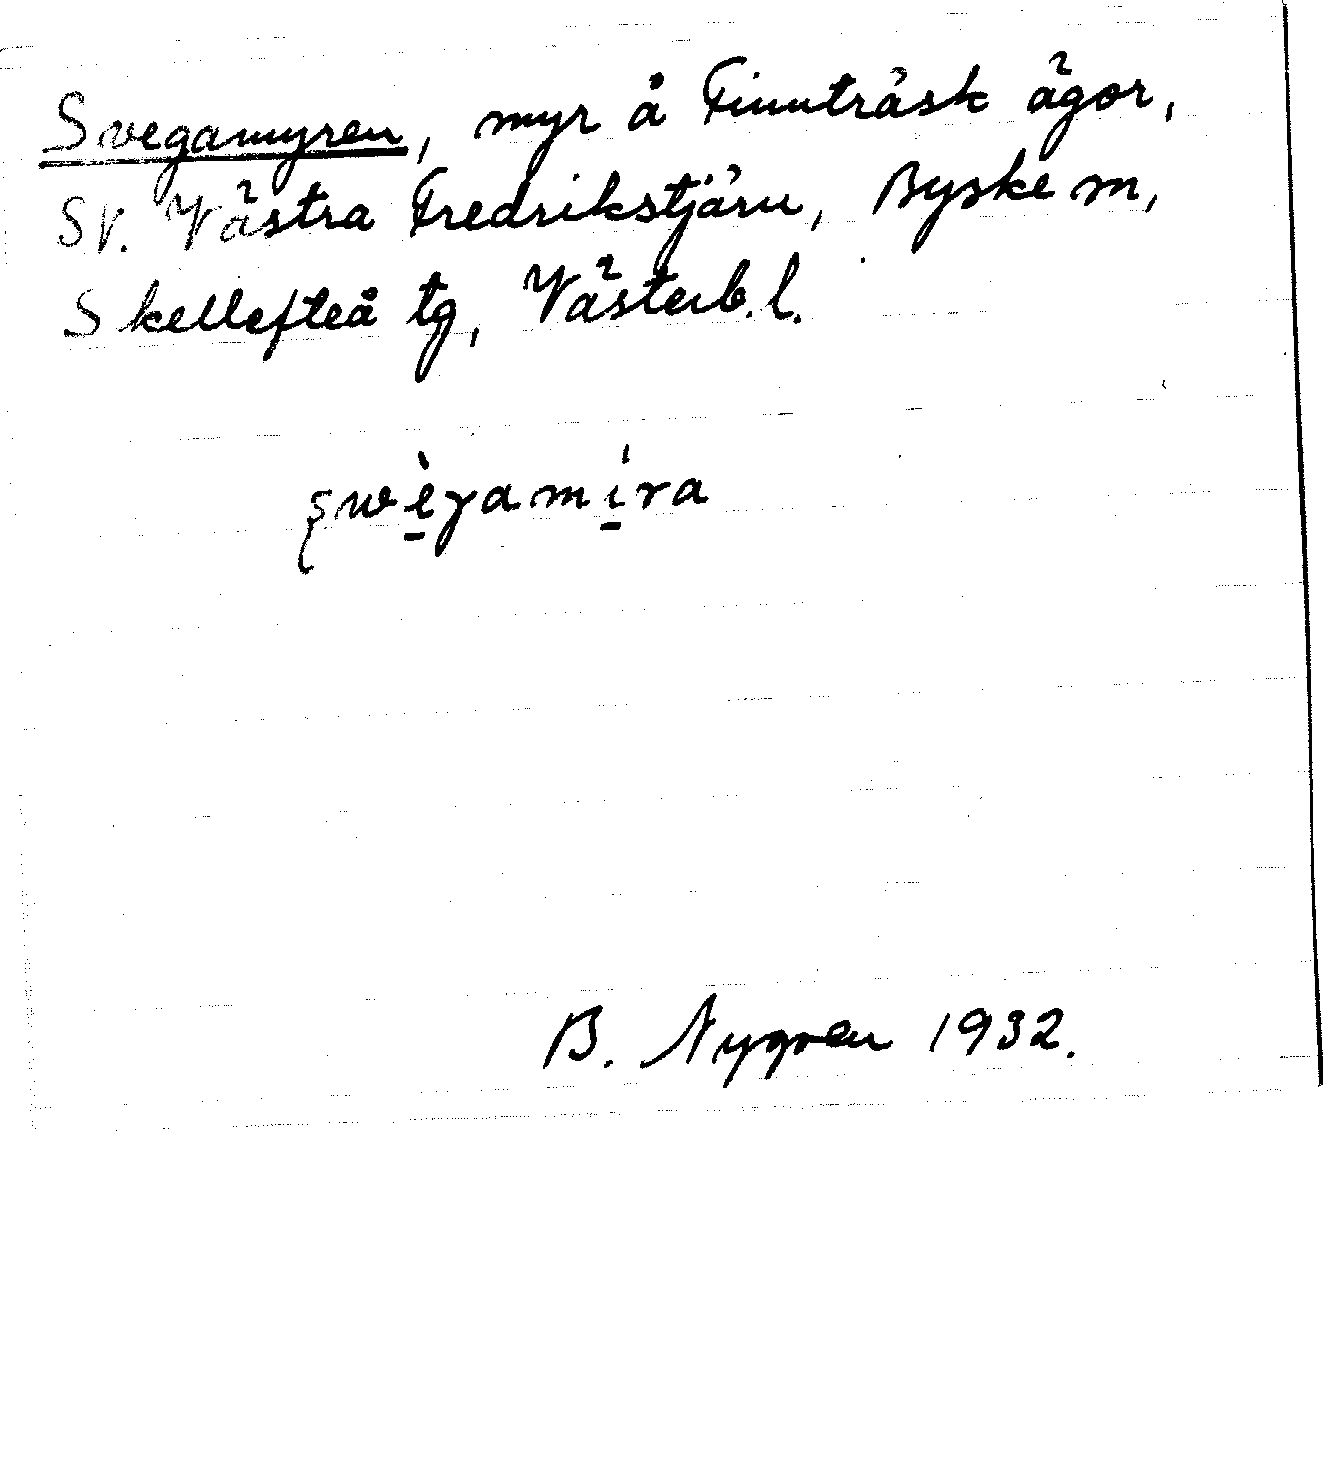 Svegamyren, myr å Finnträsk ägor,
SV. Västra Fredrikstjärn, Byske sn,
Skellefteå tg, Västerb. l.
swègamíra
B. Nygren 1932.